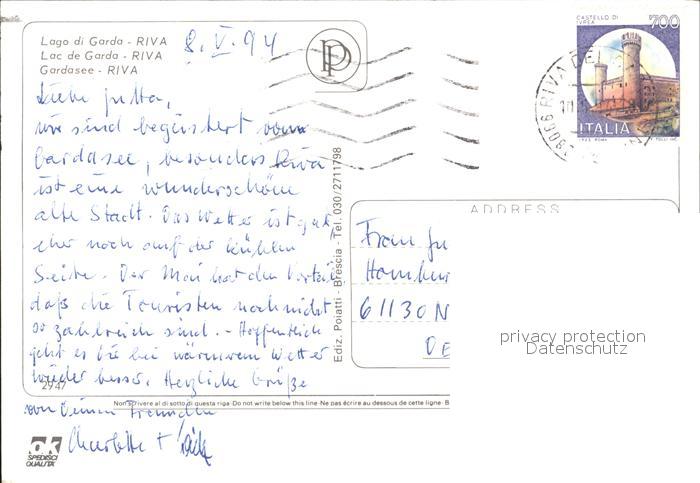 Lago di Garda - RIVA
Lac de Garda - RIVA
Gardasee - RIVA
8. V. 94
P
CASTELLO DI IVREA
700
ITALIA
38066 RIVA DEL
Liebe Jutta,
wir sind begeistert vom
Gardasee, besonders Riva
ist eine wunderschöne
alte Stadt. Das Wetter ist gut,
eher noch auf der kühlen
Seite. Der Mai hat den Vorteil,
daß die Touristen noch nicht
so zahlreich sind. - Hoffentlich
geht es Dir bei wärmerem Wetter
wieder besser. Herzliche Grüße
von Deinen Freunden
Charlotte +
Ediz. Poiatti - Brescia - Tel. 030/2711798
ADDRESS
Frau Ju
Hombur
61130 N
DE
privacy protection
Datenschutz
2947
Non scrivere al di sotto di questa riga - Do not write below this line - Ne pas écrire au dessous de cette ligne - B
OK
SPEDISCI
QUALITA'